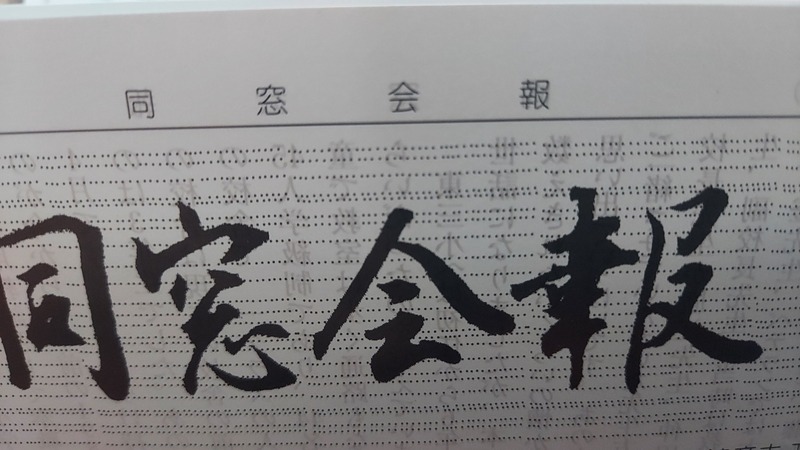 同窓会報
同窓会報